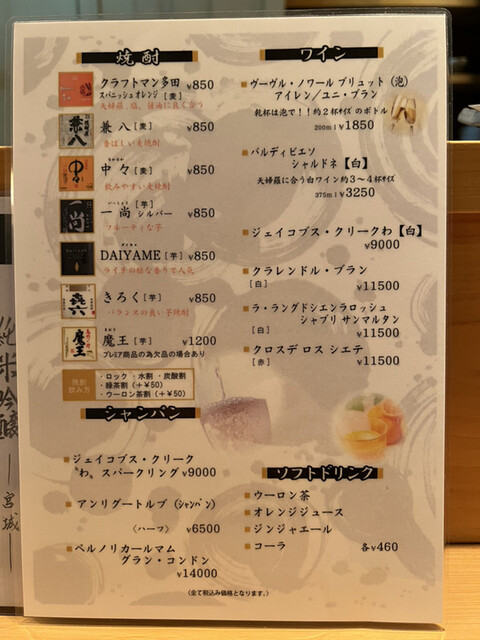 焼酎
クラフトマン多田
スパニッシュオレンジ [麦] ¥850
天婦羅、塩、醤油に良く合う
兼八 [麦] ¥850
香ばしい麦焼酎
中々 [麦] ¥850
飲みやすい麦焼酎
一尚 シルバー [芋] ¥850
フルーティな芋
DAIYAME [芋] ¥850
ライチの様な香りで人気
きろく [芋] ¥850
バランスの良い芋焼酎
魔王 [芋] ¥1200
プレミア商品の為欠品の場合あり
焼酎
飲み方
・ロック ・水割 ・炭酸割
・緑茶割(+¥50)
・ウーロン茶割(+¥50)
シャンパン
ジェイコブス・クリーク
"わ" スパークリング ¥9000
アンリグートルブ(シャンパン)
〈ハーフ〉 ¥6500
ペルノリカールマム
グラン・コンドン
¥14000
ワイン
ヴーヴル・ノワール ブリュット(泡)
アイレン/ユニ・ブラン
乾杯は泡で!!約2杯サイズのボトル
200ml ¥1850
バルディビエソ
シャルドネ【白】
天婦羅に合う白ワイン約3~4杯サイズ
375ml ¥3250
ジェイコブス・クリークわ【白】
¥9000
クラレンドル・ブラン
[白] ¥11500
ラ・ラングドシエンラロッシュ
シャブリ サンマルタン
[白] ¥11500
クロスデ ロス シエテ
[赤] ¥11500
ソフトドリンク
ウーロン茶
オレンジジュース
ジンジャエール
コーラ 各¥460
(全て税込み価格となります。)
純米吟醸
宮城